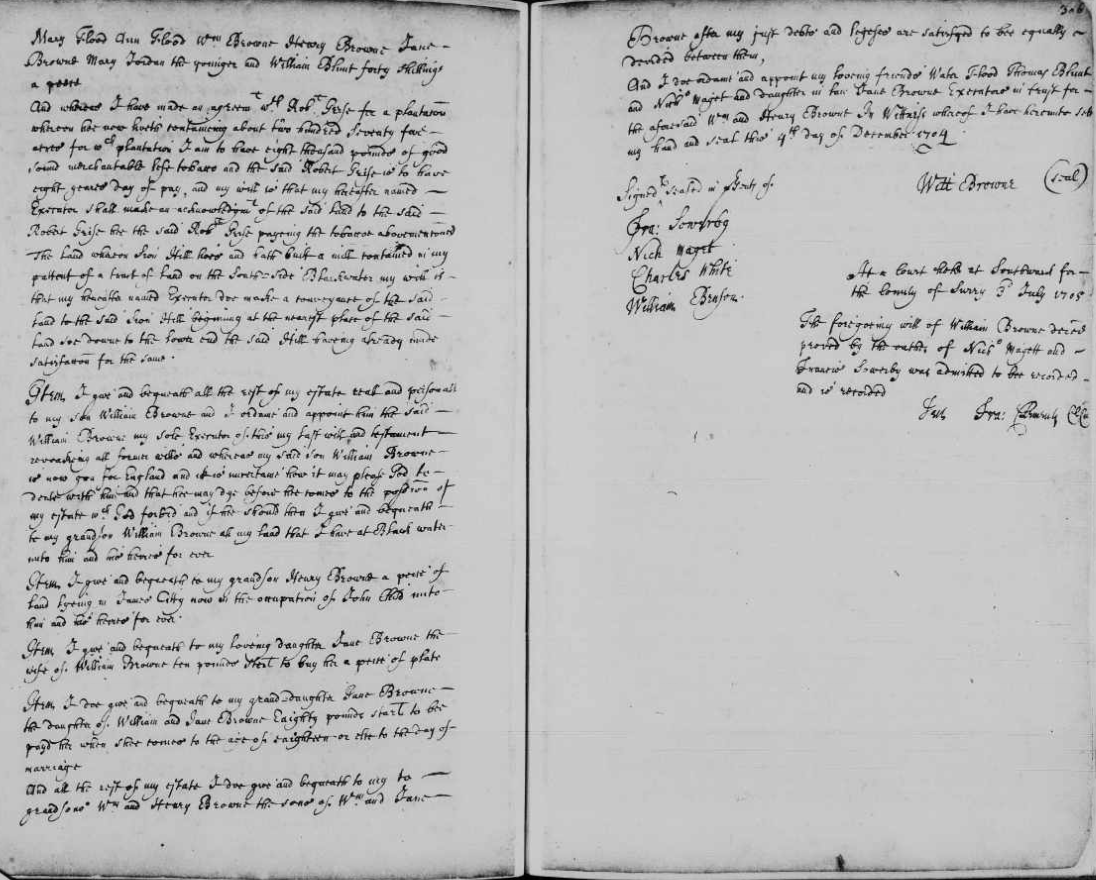 Mary Flood Ann Flood Wm Browne Henry Browne Jane
Browne Mary Jordan the younger and William Blunt forty shillings
a peece
And whereas I have made an agreemt wth Robt Grise for a plantation
whereon hee now liveth containeing about two hundred seventy five
acres for wch plantation I am to have eight thousand pounds of good
sound merchantable tobacco and the said Robert Grise is to have
eight yeares day of pay, and my will is that my hereafter named
Executor shall make an acknowledgmt of the said land to the said
Robert Grise hee the said Robt Grise payeing the tobacco abovementioned
The land whereon Hill lives and hath built a mill contained in my
pattent of a tract of land on the South-side Blackwater my will is
that my hereafter named Executor doe make a conveyance of the said
land to the said Hill begining at the nearest place of the said
land soe downe to the lower end the said Hill haveing already made
satisfaction for the same.
Item I give and bequeath all the rest of my estate reall and personall
to my son William Browne and I ordaine and appoint him the said
William Browne my sole Executor of this my last will and testament
revoakeing all former wills and whereas my said son William Browne
is now gon for England and it is uncertaine how it may please God to
deale with him and that hee may dye before hee comes to the possion of
my estate wch God forbid and if hee should then I give and bequeath
to my grandson William Browne all my land that I have at Black water
unto him and his heires for ever
Item I give and bequeath to my grandson Henry Browne a peice of
land lyeing in James Citty now in the occupation of John unto
him and his heires for ever
Item I give and bequeath to my loveing daughter Jane Browne the
wife of William Browne ten pounds sterl to buy her a peice of plate
Item I doe give and bequeath to my grand-daughter Jane Browne
the daughter of William and Jane Browne Eaighty pounds starl to bee
payd her when shee comes to the age of eaighteen or else to the day of
marriage
And all the rest of my estate I doe give and bequeath to my to
grandsons Wm and Henry Browne the sons of Wm and Jane
306
Browne after my just debts and legeses are satisfyed to bee equally
devided between them,
And I doe ordaine and appoint my loveing friends Water Flood Thomas Blunt
and Nichs Maget and daughter in law Jane Browne Executors in trust for
the aforesaid Wm and Henry Browne In Witnesse whereof I have hereunto sett
my hand and seal this 4th day of December 1704
Signed sealed in psenty of
Will Browne (seal)
Fra: Sowerby
Nich Maget
Charles White
William Benson.
At a Court held at Southwark for
the County of Surry 3d July 1705
The foregoeing will of William Browne deced
proved by the oathes of Nichs Magett and
Francis Sowerby was admitted to bee recorded
and is recorded
Fra: Clements Cl Cu